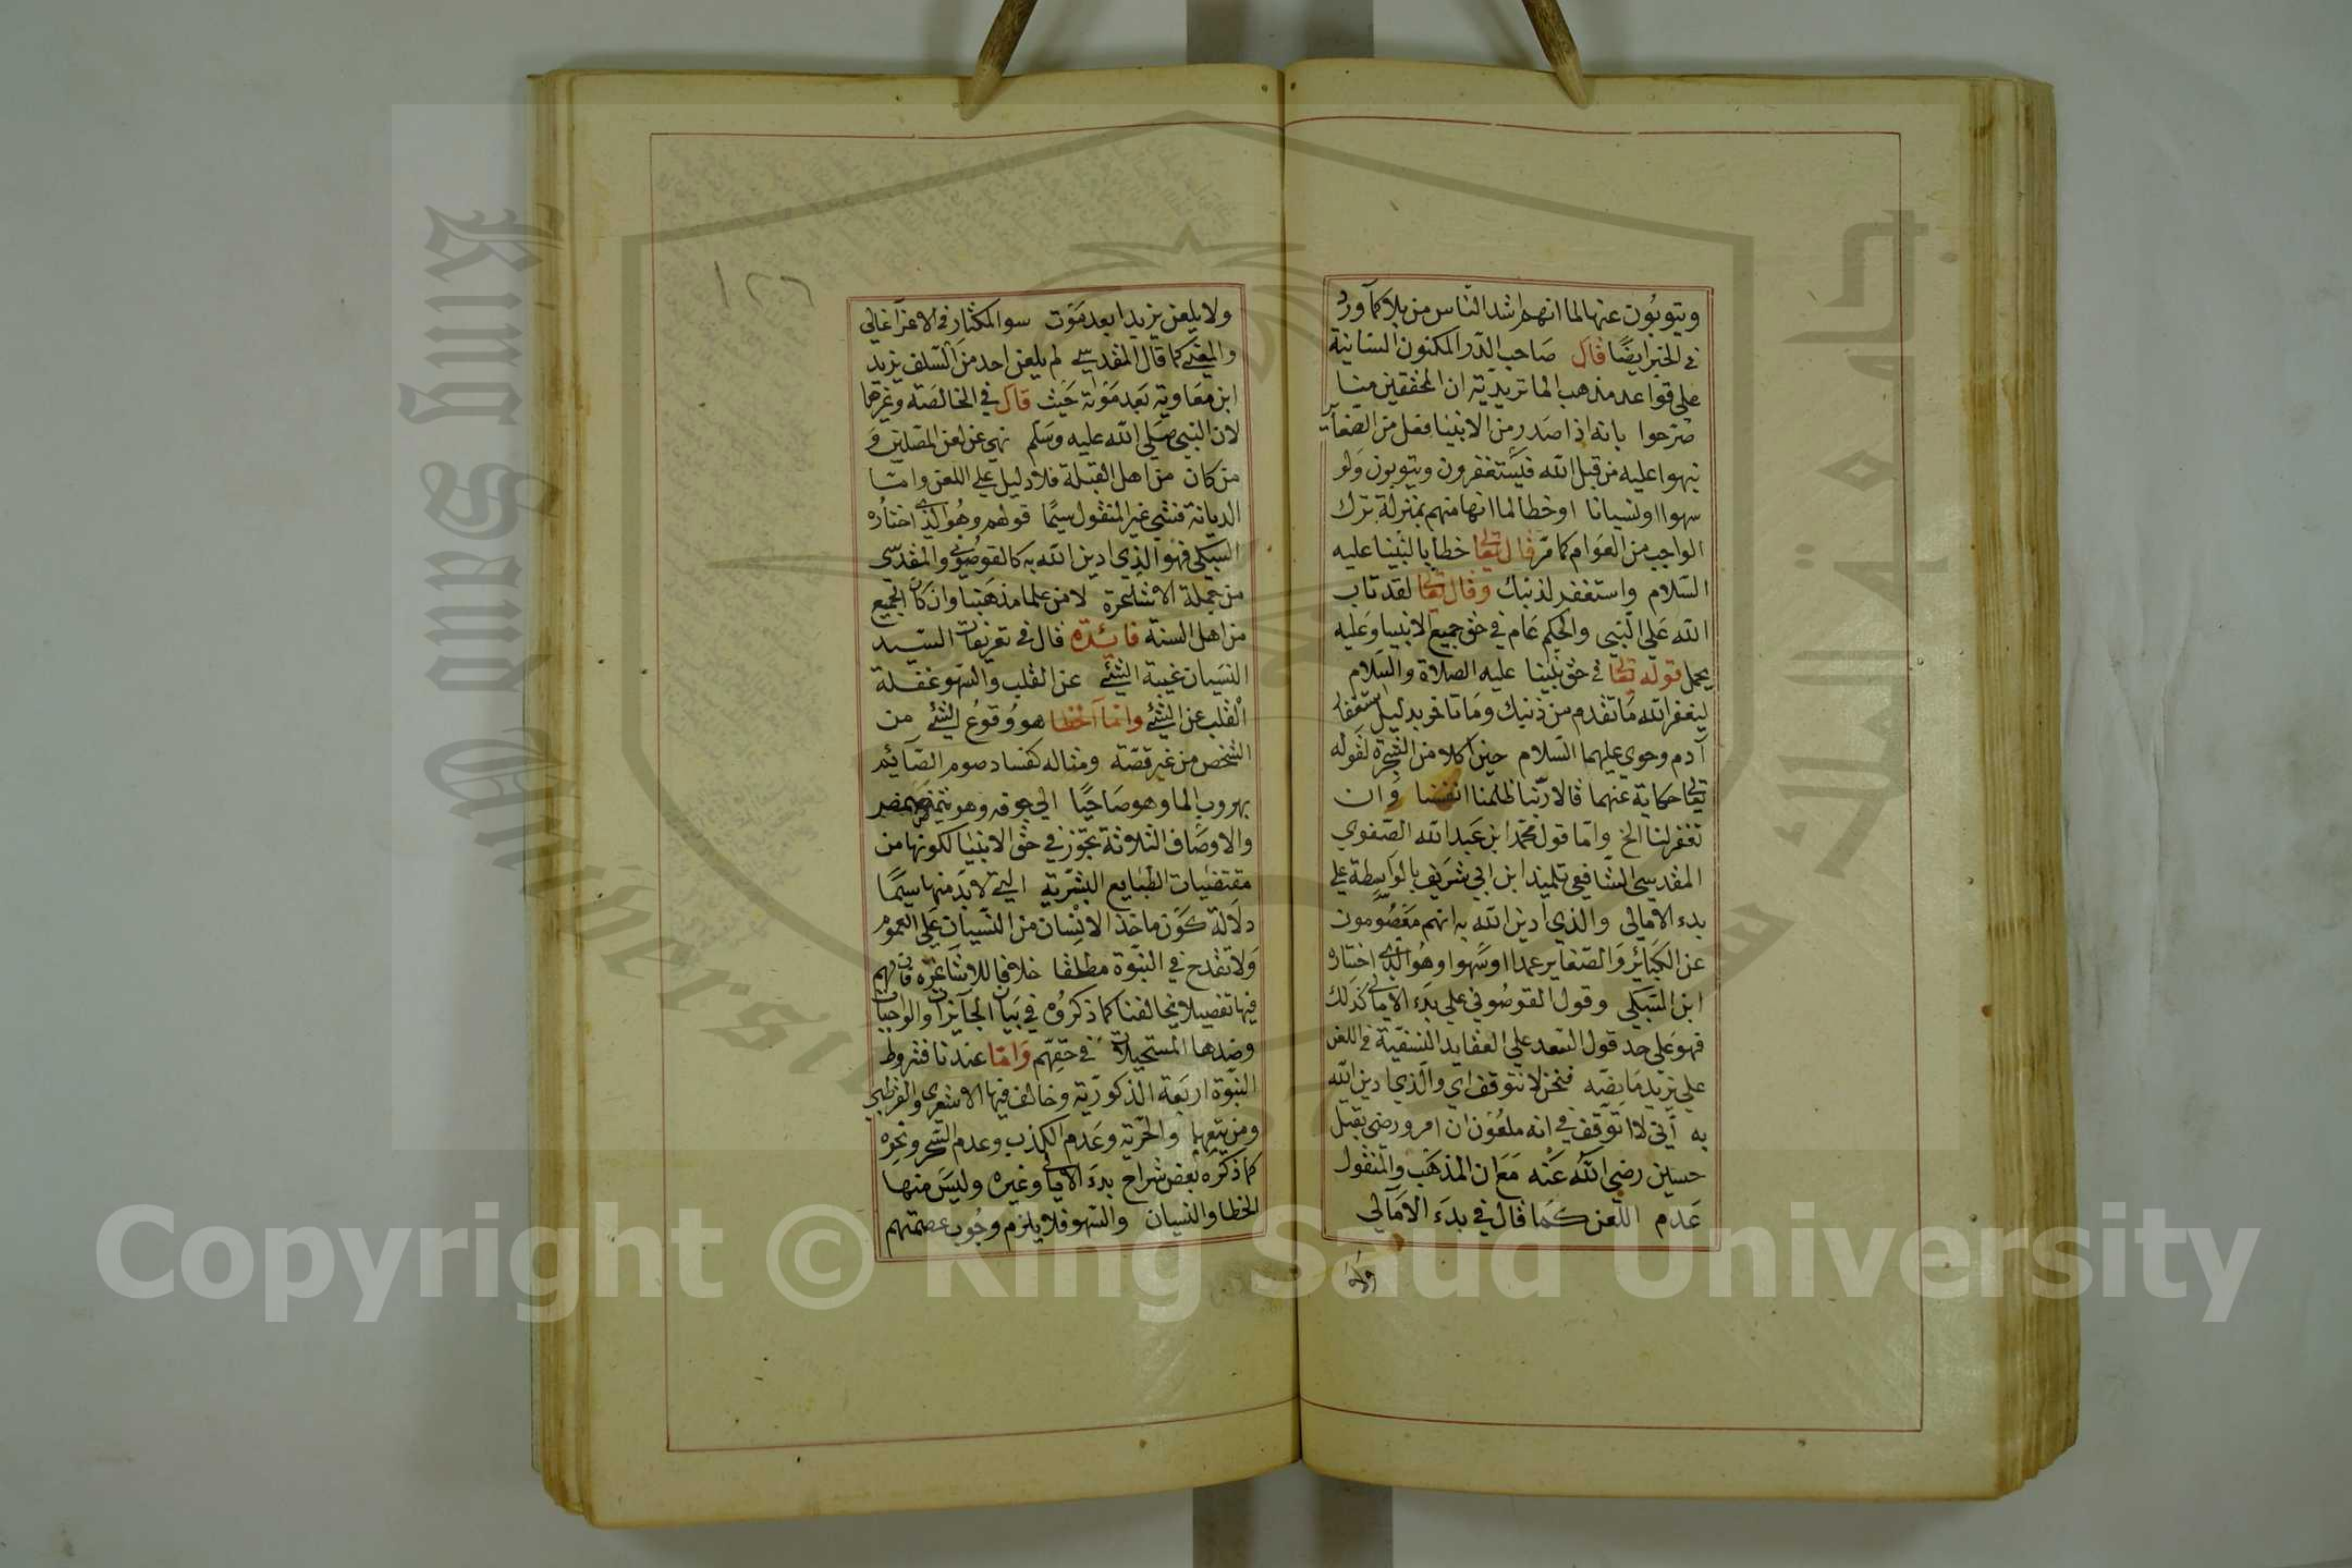 ويتوبون عنها لما انهم اشد الناس من بلا كما ورد
في الخبر ايضًا قال صاحب الدر المكنون السانية
علي قواعد مذهب الماتريدية ان المحققين منا
صرحوا بانه اذا صدر من الانبيا فعل من الصغاير
نبهوا عليه من قبل الله فيستغفرون ويتوبون ولو
سهوا او نسيانا او خطا لما انها منهم بمنزلة ترك
الواجب من العوام كما مر قال تعالى خطابا لنبينا عليه
السلام واستغفر لذنبك وقال تعالى لقد تاب
الله على النبي والحكم عام في حق جميع الانبيا وعليه
يحمل قوله تعالى في حق نبينا عليه الصلاة والسلام
ليغفر الله ما تقدم من ذنبك وما تاخر بدليل استغفار
آدم وحوي عليهما السلام حين اكلا من الشجرة لقوله
تعالى حكاية عنهما قالا ربنا ظلمنا انفسنا وان
تغفر لنا الخ واما قول محمد ابن عبد الله الصفوي
المقدسي الشافعي تلميذ ابن ابي شريف بالواسطة علي
بدء الامالي والذي ادين الله به انهم معصومون
عن الكبائر والصغاير عمدا او سهوا وهو الذي اختاره
ابن السبكي وقول القوصوني علي بدء الامالي كذلك
فهو علي حد قول السعد علي العقايد النسفية في اللعن
علي يزيد ما نصه فنحن لا نتوقف اي والذي ادين الله
به أني لا اتوقف في انه ملعون ان امر ورضي بقتل
حسين رضي الله عنه مع ان المذهب والمنقول
عدم اللعن كما قال في بدء الامالي
ولا
١٢٦
ولا يلعن يزيدا بعد موت سوا المكثار في الاغرآ غالي
والمعني كما قال المقدسي لم يلعن احد من السلف يزيد
ابن معاوية بعد موته حيث قال في الخالصة وغيرها
لان النبي صلى الله عليه وسلم نهي عن لعن المصلين و
من كان من اهل القبلة فلا دليل علي اللعن واما
الديانة فشي غير المنقول سيما قولهم وهو الذي اختاره
السبكي فهو الذي ادين الله به كالقوصوني والمقدسي
من جملة الاشاعرة لا من علما مذهبنا وان كان الجميع
من اهل السنة فائدة قال في تعريفات السيد
النسيان غيبة الشئ عن القلب والسهو غفلة
القلب عن الشئ واما الخطا هو وقوع الشئ من
الشخص من غير قصة ومثاله كفساد صوم الصائم
بهروب الما وهو صاحيا الي جوفه وهو يتمضمض
والاوصاف الثلاثة تجوز في حق الانبيا لكونها من
مقتضيات الطبايع البشرية التي لا بد منها سيما
دلالة كون ماخذ الانسان من النسيان على العموم
ولا تقدح في النبوة مطلقا خلافا للاشاعرة فان لهم
فيها تفصيلا يخالفنا كما ذكروه في بيان الجايزات والواجبات
وضدها المستحيلات في حقهم واما عندنا فشروط
النبوة اربعة الذكورية وخالف فيها الاشعري والقرطبي
ومن يتبعهما والحرية وعدم الكذب وعدم السحر ونحوه
كما ذكره بعض شراح بدء الامالي وغيره وليس منها
الخطا والنسيان والسهو فلا يلزم وجوب عصمتهم
King Saud University
جامعة الملك سعود
Copyright © King Saud University